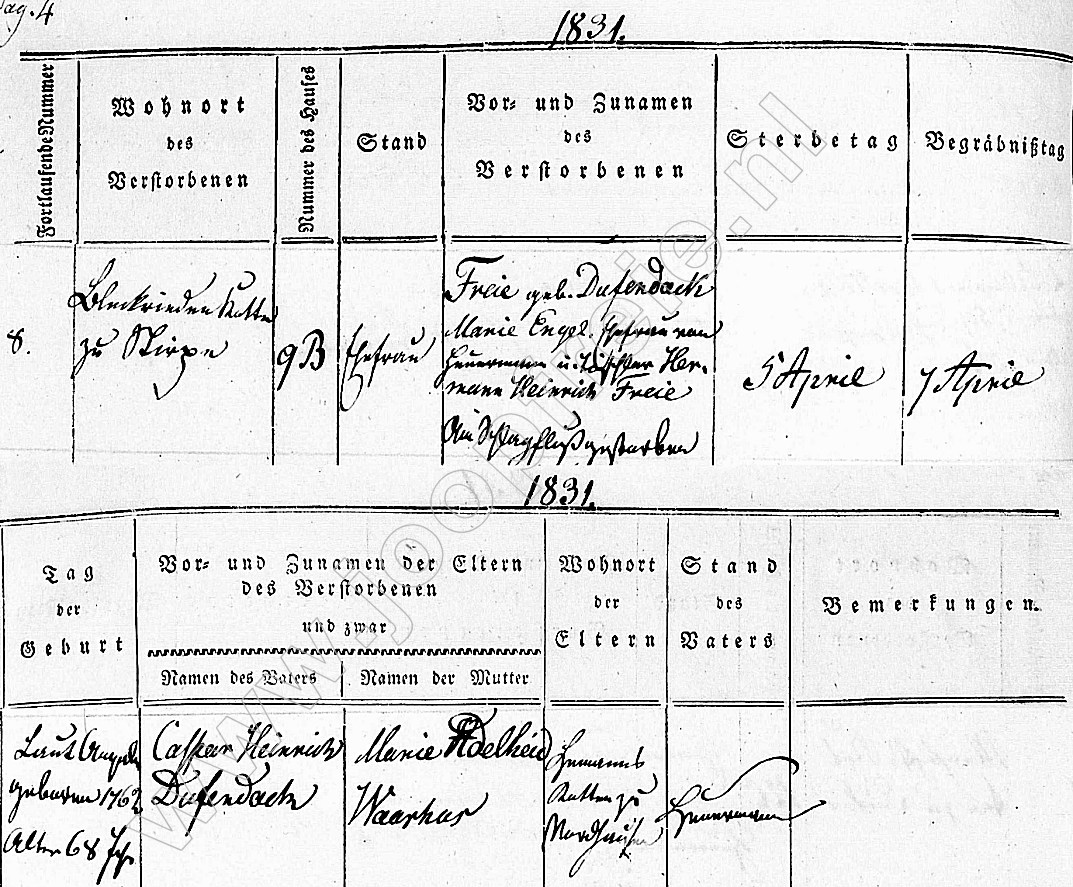 pag. 4
1831.
Fortlaufende Nummer
Wohnort
des
Verstorbenen
Nummer des Hauses
Stand
Vor- und Zunamen
des
Verstorbenen
Sterbetag
Begräbnißtag
8.
Kotten
zu Stirpe
9B
Ehefrau
Freie geb. Dufendach
Marie Engel. Ehefrau von
Heuermann u. Tischler Her-
mann Heinrich Freie
Am Schlagfluß gestorben
5 April
7 April
1831.
Tag
der
Geburt
Vor- und Zunamen der Eltern
des Verstorbenen
und zwar
Namen des Vaters
Namen der Mutter
Wohnort
der
Eltern
Stand
des
Vaters
Bemerkungen.
Laut Angabe
geboren 1762
Alter 68 Jhr
Caspar Heinrich
Dufendach
Marie Adelheid
Waarhus
Kotten zu
Nordhausen
Heuermann
www.joopfreie.nl